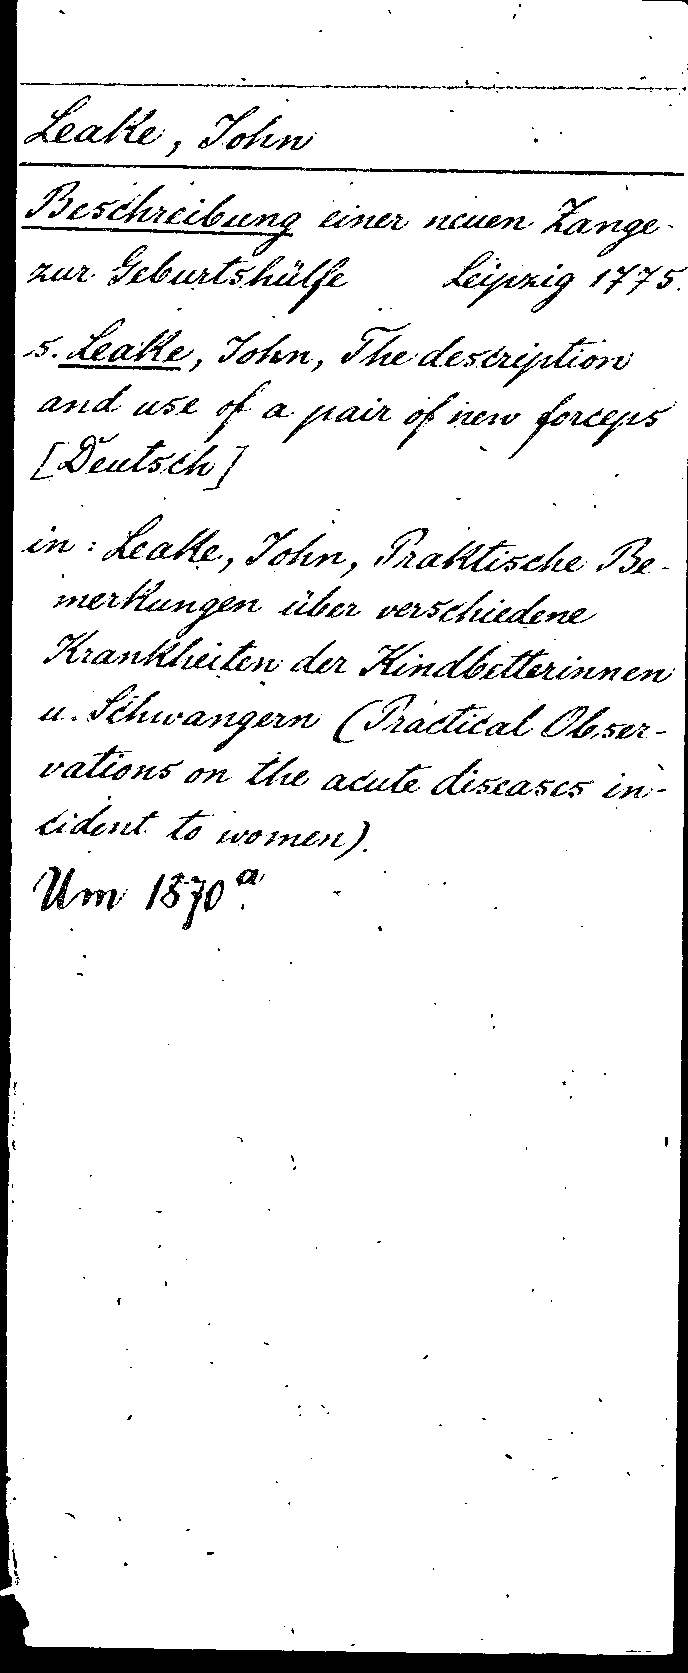 Leake, John
Beschreibung einer neuen Zange
zur Geburtshülfe Leipzig 1775.
s. Leake, John, The description
and use of a pair of new forceps
[Deutsch]
in: Leake, John, Praktische Be-
merkungen über verschiedene
Krankheiten der Kindbetterinnen
u. Schwangern (Practical Obser-
vations on the acute diseases in-
cident to women).
Um 1870a.